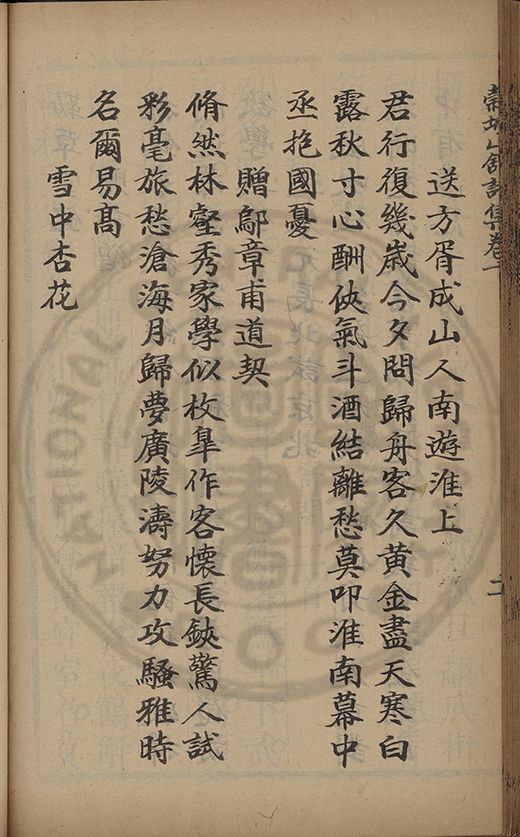 送方胥成山人南遊淮上
君行復幾歲今夕問歸舟客久黃金盡天寒白
露秋寸心酬俠氣斗酒結離愁莫叩淮南幕中
丞抱國憂
贈鄔章甫道契
脩然林壑秀家學似枚臯作客懷長鋏驚人試
彩毫旅愁滄海月歸夢廣陵濤努力攻騷雅時
名爾易高
雪中杏花